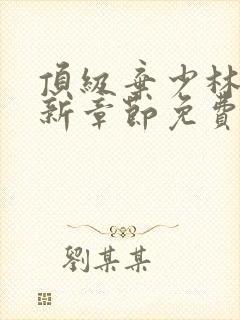 頂級棄少林
新章節免費
劉某某